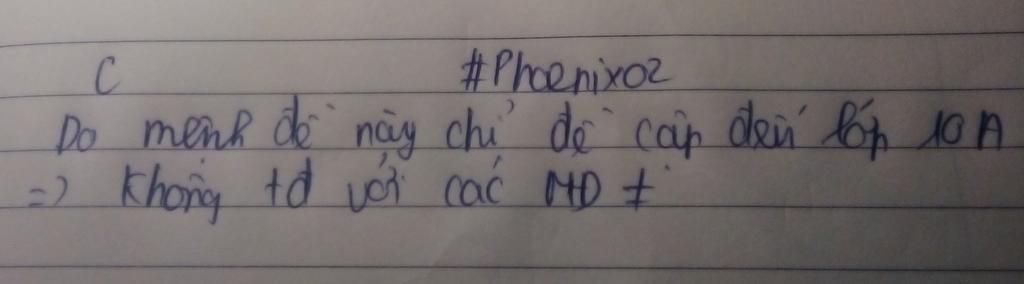 C #Phoenix02
Do mệnh đề này chỉ đề cập đến lớp 10A
=> Không tđ với các MĐ ≠